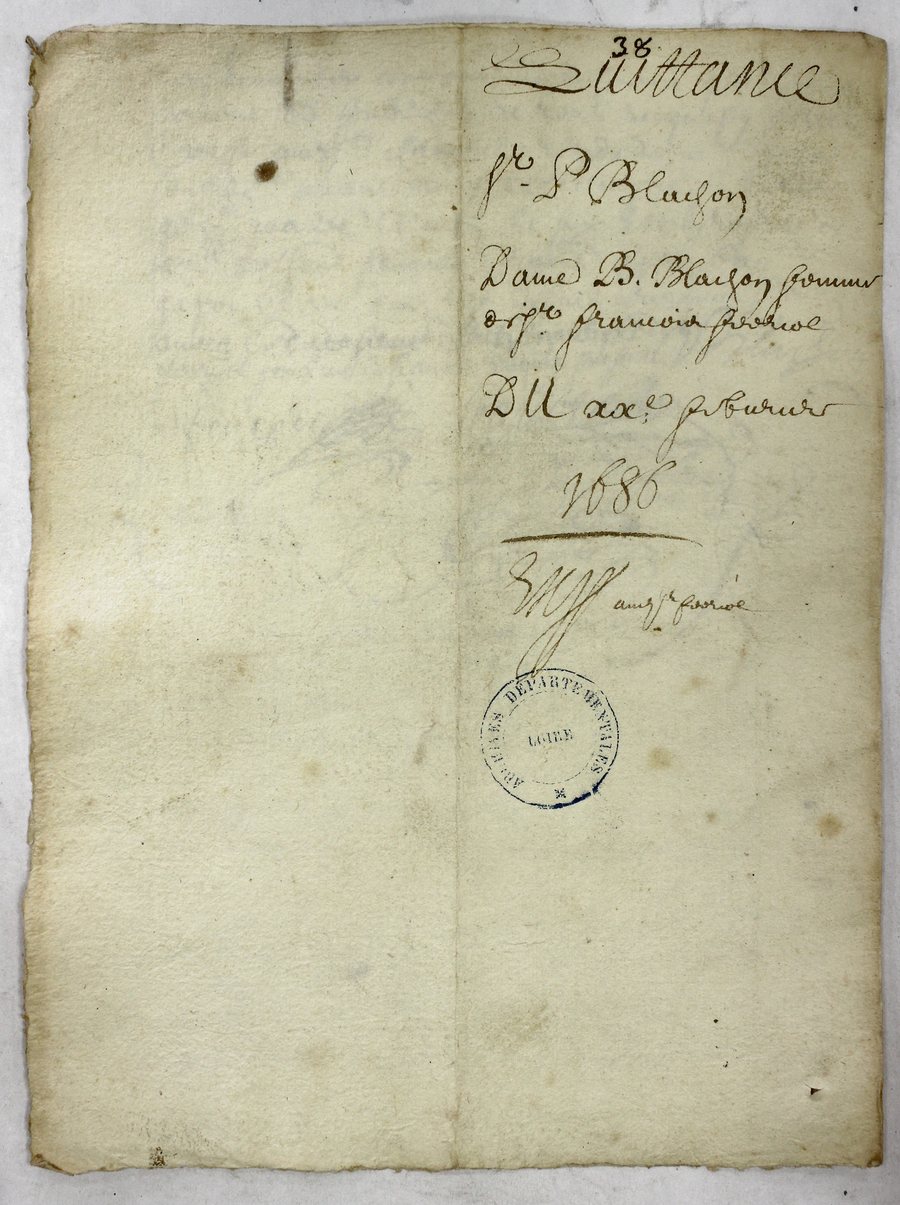 38
Quittance
sr P Blachon
Dame B. Blachon femme
de sr francois ferriol
DU xxe feburier
1686
sr ferriol
ARCHIVES DÉPARTEMENTALES
LOIRE